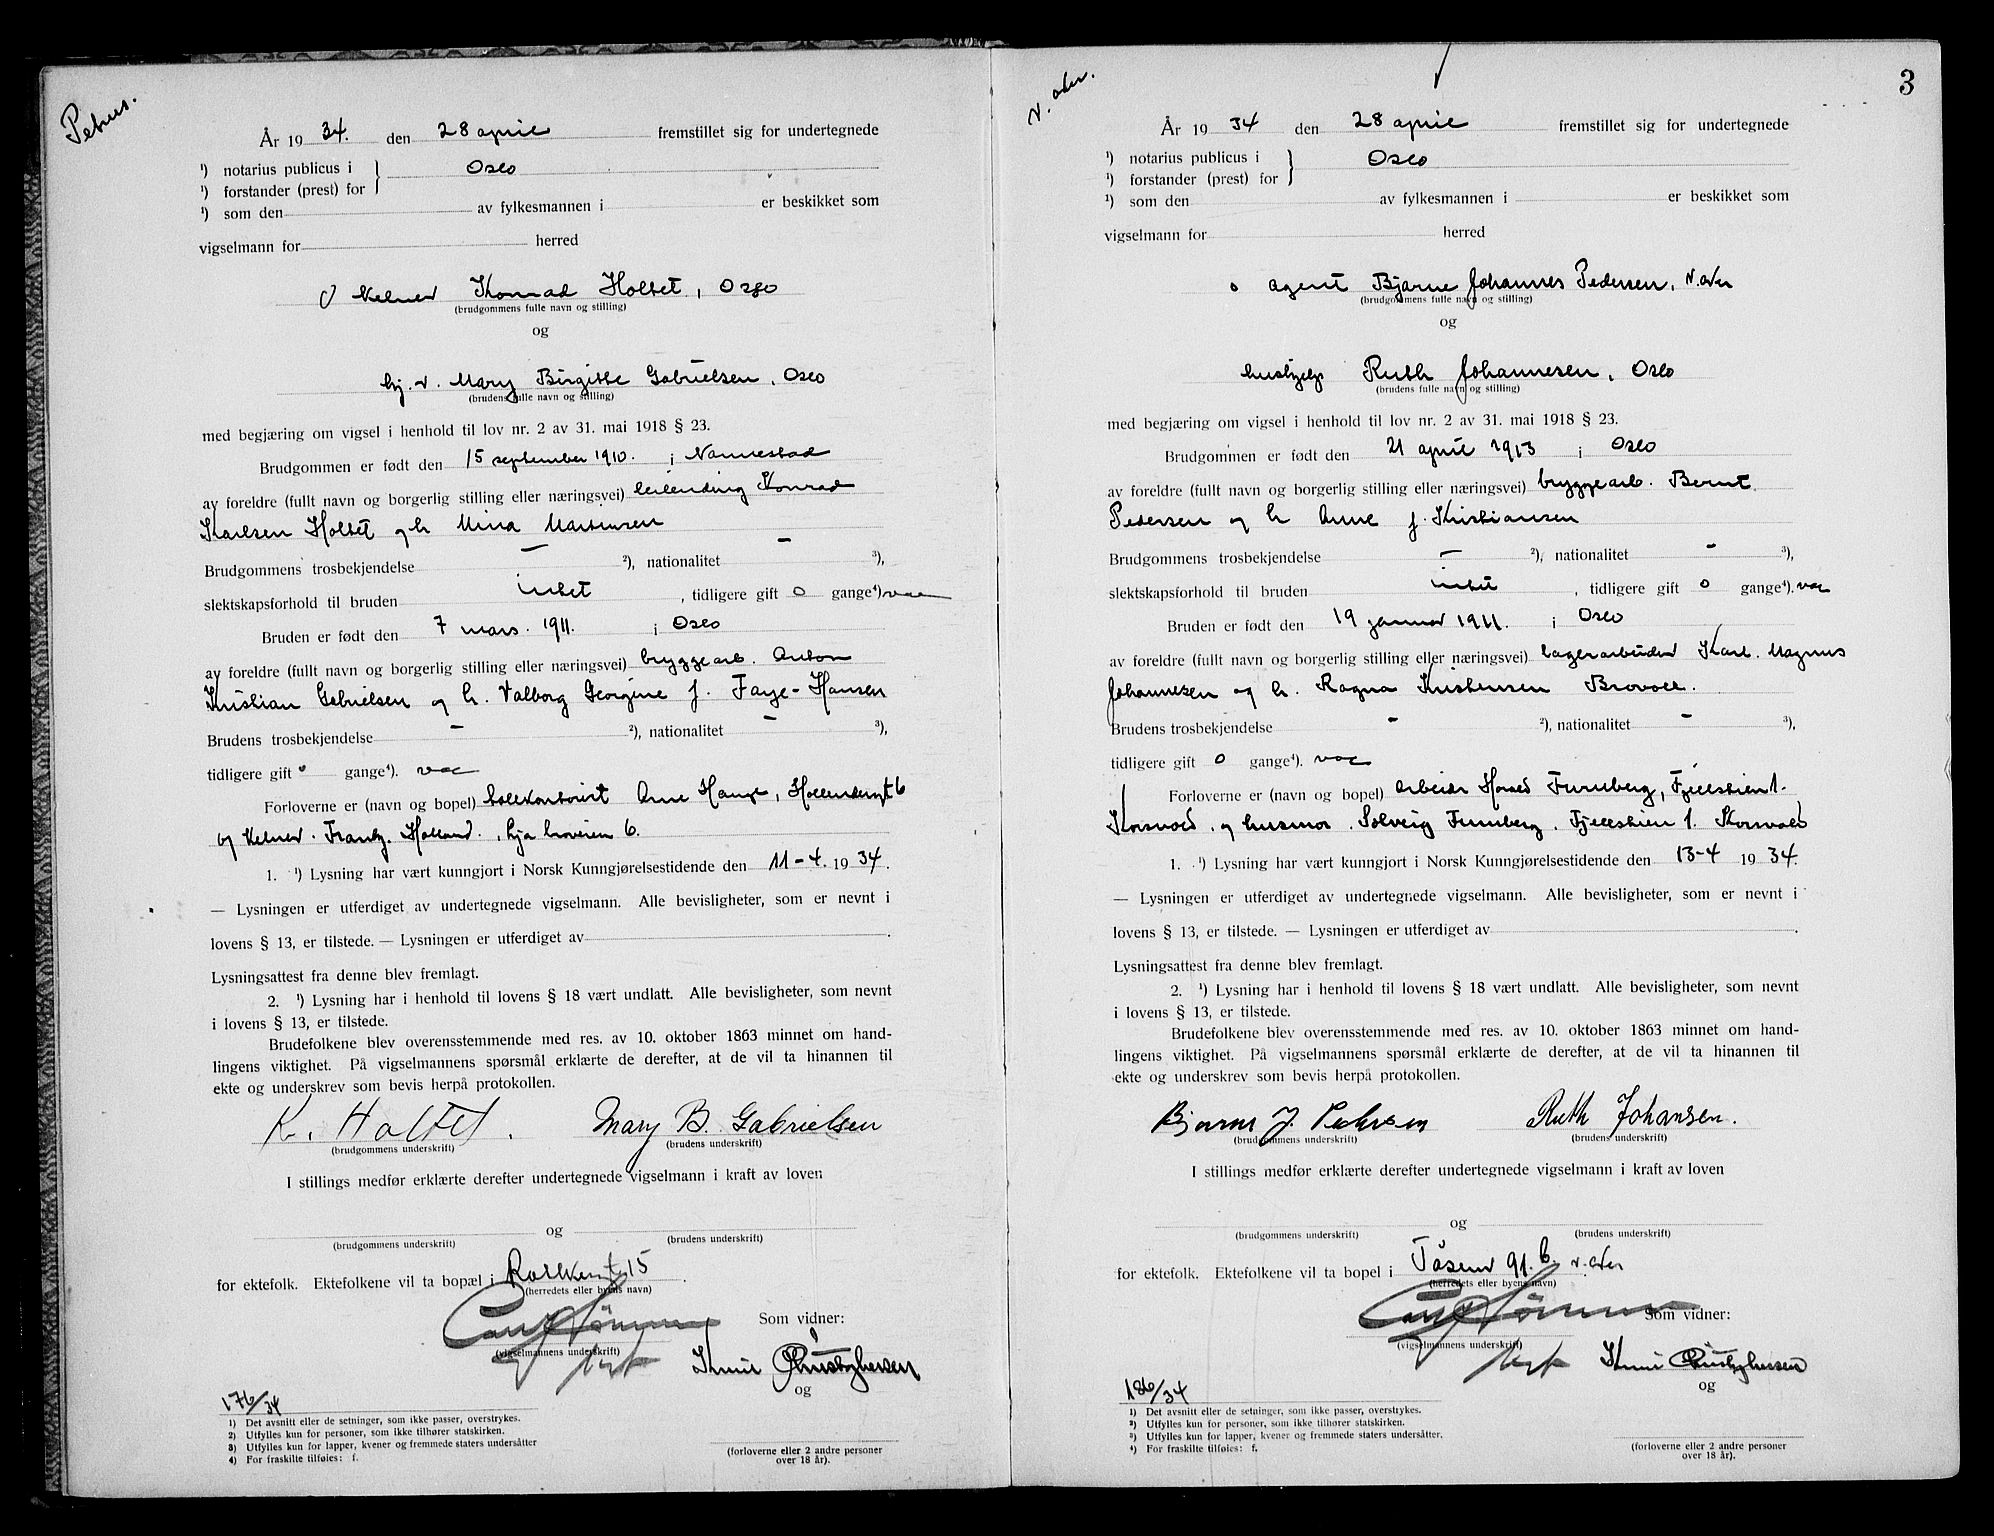 Petrus.
År 19 34. den 28 april fremstillet sig for undertegnede
¹) notarius publicus i } Oslo
¹) forstander (prest) for
¹) som den av fylkesmannen i er beskikket som
vigselmann for herred
Kelner Konrad Holtet, Oslo
(brudgommens fulle navn og stilling)
og
hj. v. Mary Birgitte Gabrielsen, Oslo
(brudens fulle navn og stilling)
med begjæring om vigsel i henhold til lov nr. 2 av 31. mai 1918 § 23.
Brudgommen er født den 15 september 1910. i Nannestad
av foreldre (fullt navn og borgerlig stilling eller næringsvei) leilending Konrad
Karlsen Holtet og h Mina Martinsen
Brudgommens trosbekjendelse — ²), nationalitet — ³),
slektskapsforhold til bruden intet, tidligere gift 0 gange⁴)
Bruden er født den 7 mars. 1911. i Oslo
av foreldre (fullt navn og borgerlig stilling eller næringsvei) bryggearb. Anton
Kristian Gabrielsen og h. Valborg Georgine f. Faye-Hansen
Brudens trosbekjendelse — ²), nationalitet — ³),
tidligere gift 0 gange⁴).
Forloverne er (navn og bopel) Arne Hauge,
og Kelner. Frantz. Holland., 6.
1. ¹) Lysning har vært kunngjort i Norsk Kunngjørelsestidende den 11-4. 19 34.
— Lysningen er utferdiget av undertegnede vigselmann. Alle bevisligheter, som er nevnt i
lovens § 13, er tilstede. — Lysningen er utferdiget av .
Lysningsattest fra denne blev fremlagt.
2. ¹) Lysning har i henhold til lovens § 18 vært undlatt. Alle bevisligheter, som nevnt
i lovens § 13, er tilstede.
Brudefolkene blev overensstemmende med res. av 10. oktober 1863 minnet om hand-
lingens viktighet. På vigselmannens spørsmål erklærte de derefter, at de vil ta hinannen til
ekte og underskrev som bevis herpå protokollen.
K. Holtet. Mary B. Gabrielsen
(brudgommens underskrift) (brudens underskrift)
I stillings medfør erklærte derefter undertegnede vigselmann i kraft av loven
og
(brudgommens underskrift) (brudens underskrift)
for ektefolk. Ektefolkene vil ta bopæl i 15
(herredets eller byens navn)
Som vidner:
(vigselmannens underskrift)
og
176/34
1) Det avsnitt eller de setninger, som ikke passer, overstrykes.
2) Utfylles kun for personer, som ikke tilhører statskirken.
3) Utfylles kun for lapper, kvener og fremmede staters undersåtter
4) For fraskilte tilføies: f.
(forloverne eller 2 andre personer
over 18 år).
3
V. Aker.
År 19 34 den 28 april fremstillet sig for undertegnede
¹) notarius publicus i } Oslo
¹) forstander (prest) for
¹) som den av fylkesmannen i er beskikket som
vigselmann for herred
agent Bjarne Johannes Pedersen, V. Aker
(brudgommens fulle navn og stilling)
og
hushjelp Ruth Johannesen, Oslo
(brudens fulle navn og stilling)
med begjæring om vigsel i henhold til lov nr. 2 av 31. mai 1918 § 23.
Brudgommen er født den 21 april 1913 i Oslo
av foreldre (fullt navn og borgerlig stilling eller næringsvei) bryggearb. Bernt
Pedersen og h Anne f. Kristiansen
Brudgommens trosbekjendelse — ²), nationalitet — ³),
slektskapsforhold til bruden intet, tidligere gift 0 gange⁴).
Bruden er født den 19 januar 1911. i Oslo
av foreldre (fullt navn og borgerlig stilling eller næringsvei) lagerarbeider Karl. Magnus
Johannesen og h. Ragna Kristensen Brovoll.
Brudens trosbekjendelse — ²), nationalitet — ³),
tidligere gift 0 gange⁴).
Forloverne er (navn og bopel) Furuberg, Fjellstien 1.
Korsvoll. og husmor. Solveig Furuberg. Fjellstien 1. Korsvoll
1. ¹) Lysning har vært kunngjort i Norsk Kunngjørelsestidende den 13-4 19 34.
— Lysningen er utferdiget av undertegnede vigselmann. Alle bevisligheter, som er nevnt i
lovens § 13, er tilstede. — Lysningen er utferdiget av .
Lysningsattest fra denne blev fremlagt.
2. ¹) Lysning har i henhold til lovens § 18 vært undlatt. Alle bevisligheter, som nevnt
i lovens § 13, er tilstede.
Brudefolkene blev overensstemmende med res. av 10. oktober 1863 minnet om hand-
lingens viktighet. På vigselmannens spørsmål erklærte de derefter, at de vil ta hinannen til
ekte og underskrev som bevis herpå protokollen.
Bjarne J. Pedersen Ruth Johansen.
(brudgommens underskrift) (brudens underskrift)
I stillings medfør erklærte derefter undertegnede vigselmann i kraft av loven
og
(brudgommens underskrift) (brudens underskrift)
for ektefolk. Ektefolkene vil ta bopel i 91. b. V. Aker
(herredets eller byens navn)
Som vidner:
(vigselmannens underskrift)
og
186/34
1) Det avsnitt eller de setninger, som ikke passer, overstrykes.
²) Utfylles kun for personer, som ikke tilhører statskirken.
³) Utfylles kun for lapper, kvener og fremmede staters undersåtter.
⁴) For fraskilte tilføies: f.
(forloverne eller 2 andre personer
over 18 år).